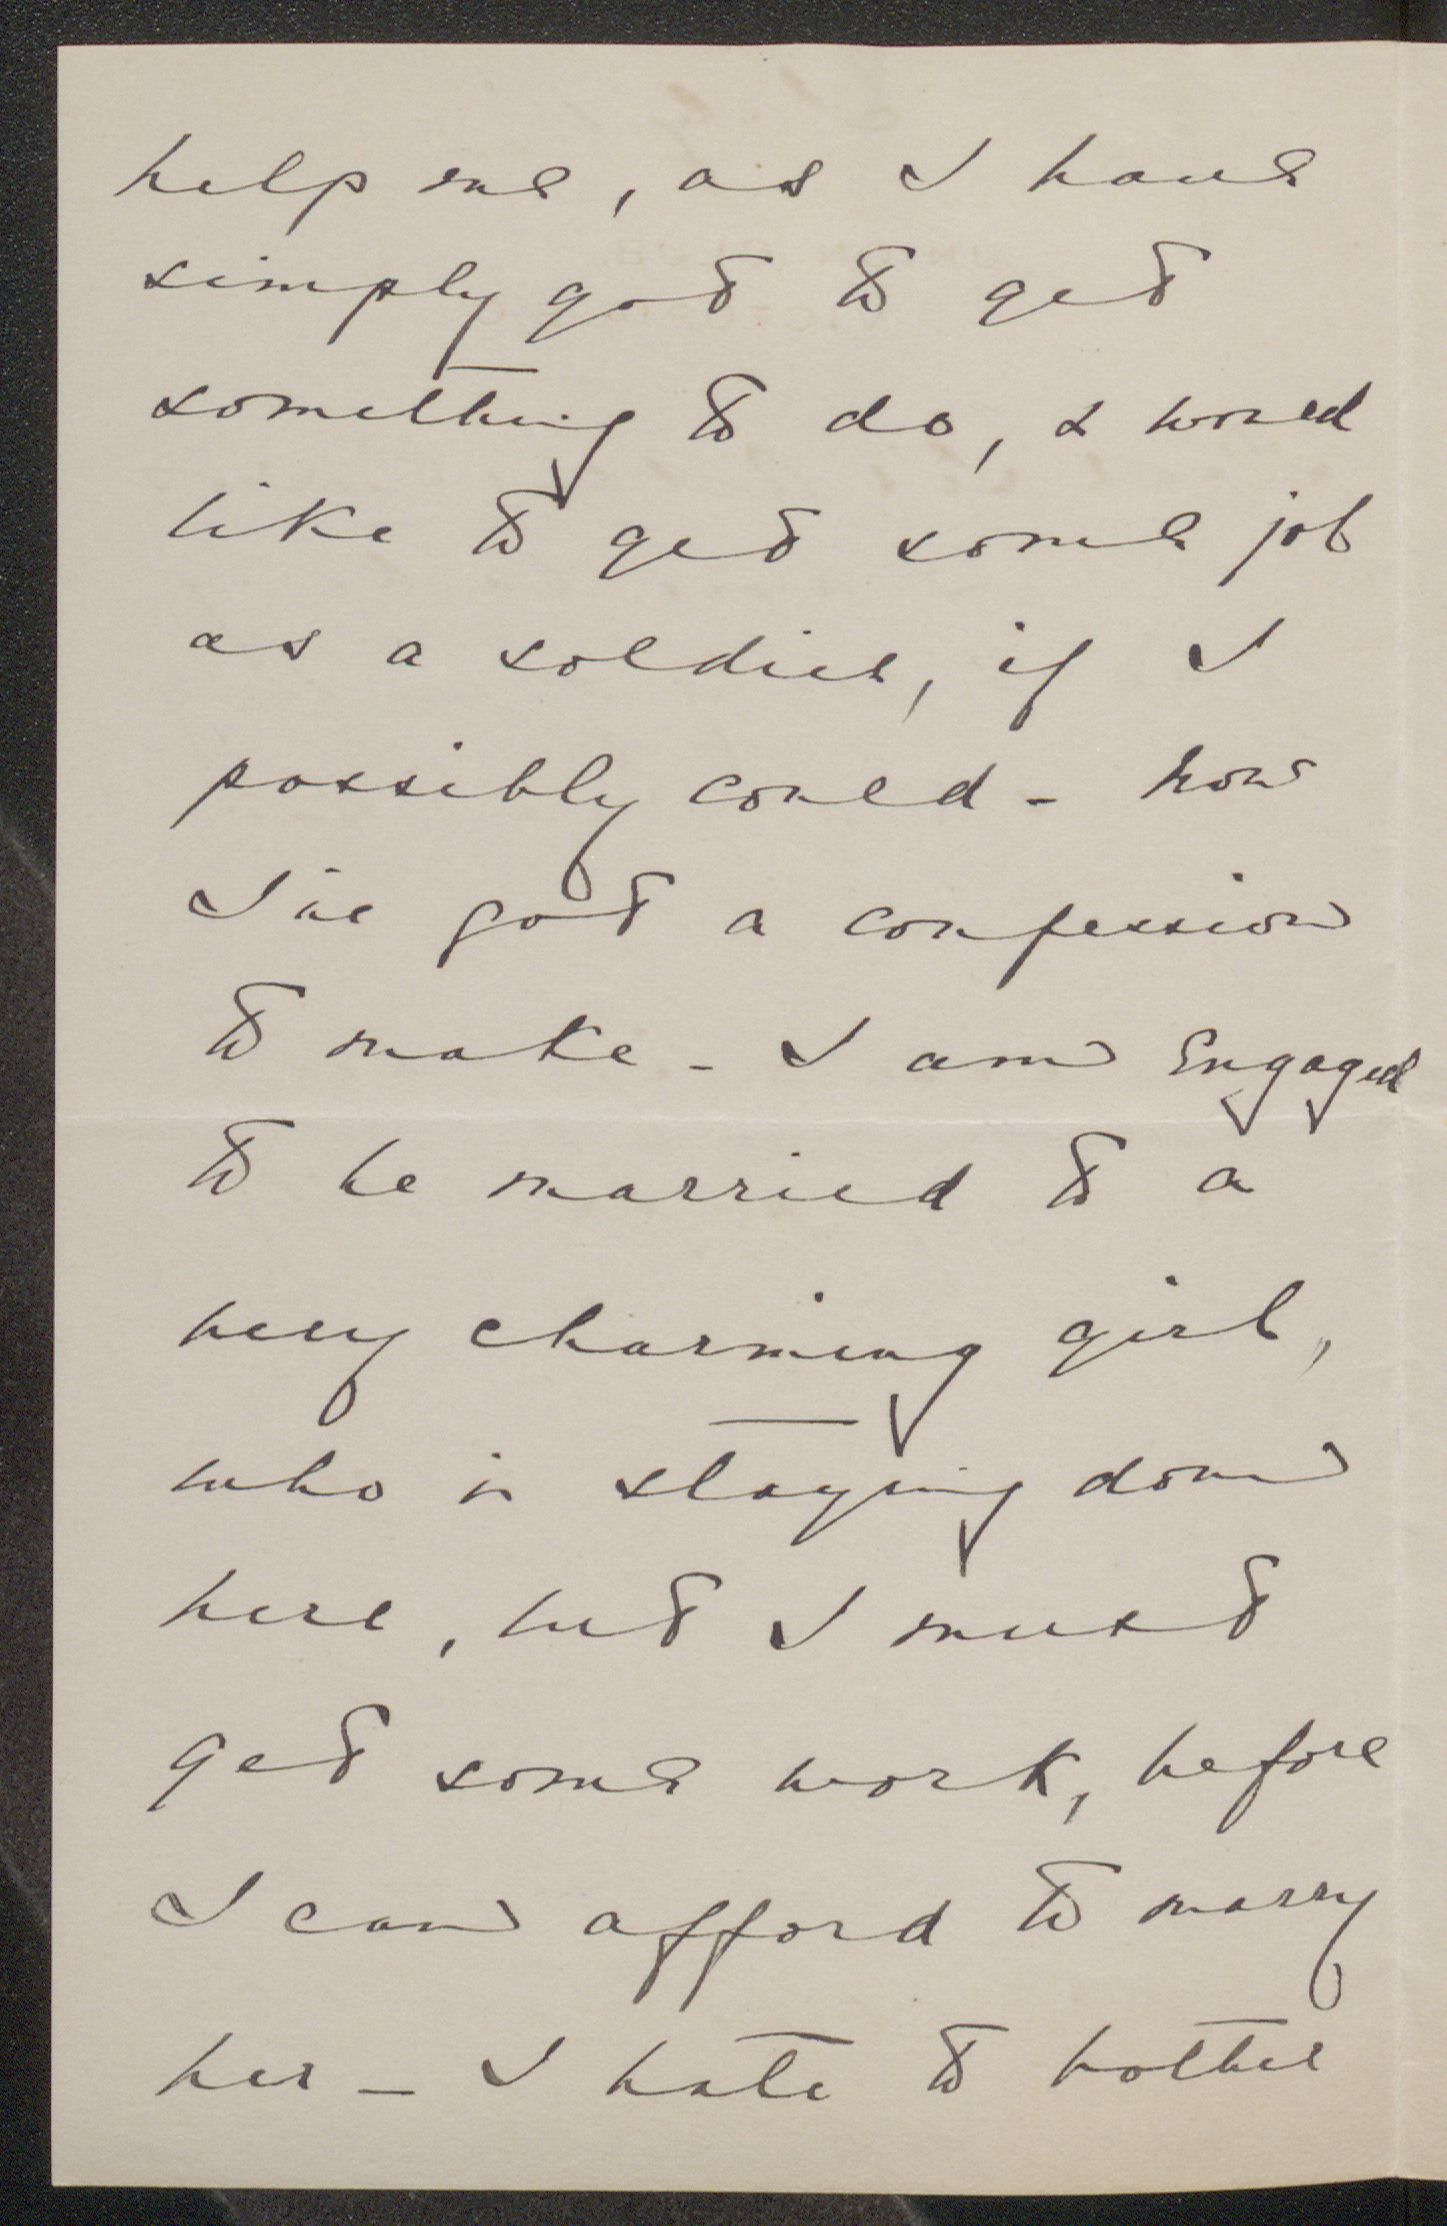 help me, as I have
simply got to get
something to do, & would
like to get some job
as a soldier, if I
possibly could - now
I've got a confession
to make - I am Engaged
to be married to a
very charming girl,
who is staying down
here, but I must
get some work, before
I can afford to marry
her - I hate to bother